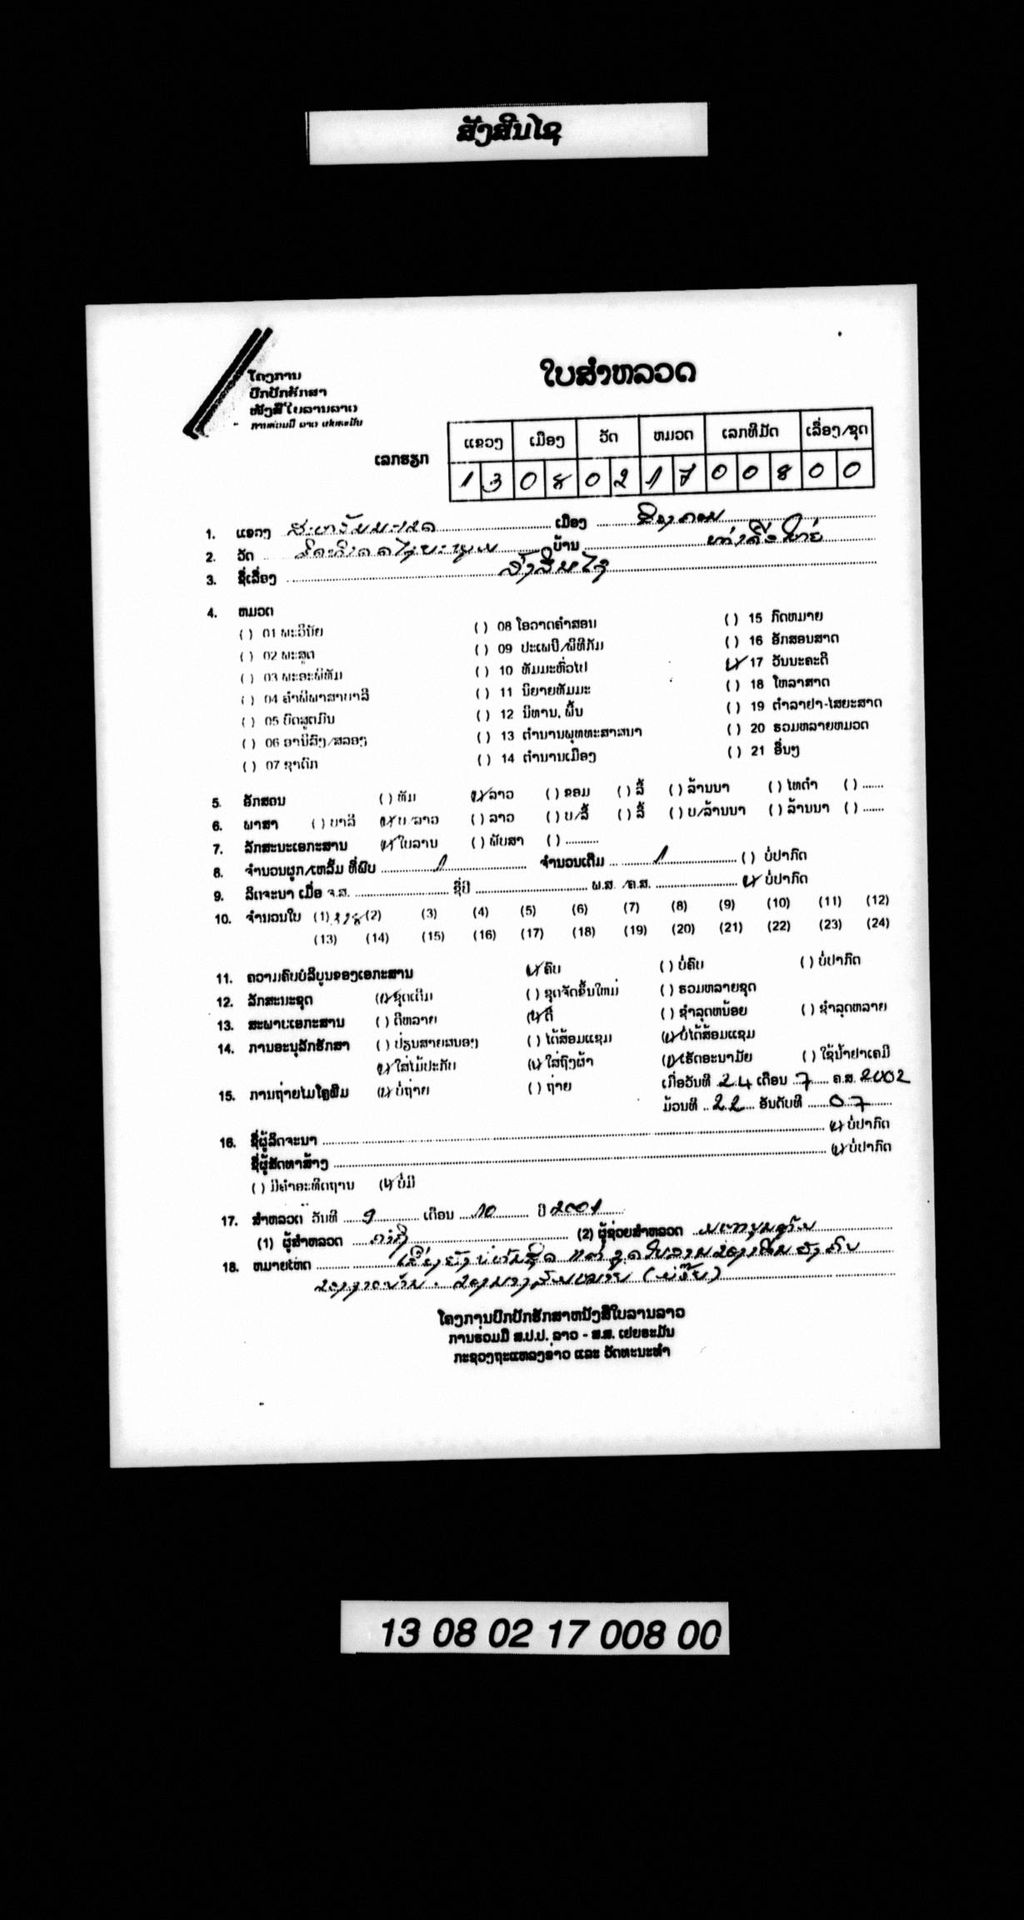 ສັງສິນໄຊ
ໂຄງການ
ປົກປັກຮັກສາ
ໜັງສືໃບລານລາວ
ການຮ່ວມມື ລາວ ເຢຍຣະມັນ
ໃບສຳຫລວດ
ເລກຮຽກ
ແຂວງ ເມືອງ ວັດ ຫມວດ ເລກທີມັດ ເລື່ອງ/ຊຸດ
1 3 0 8 0 2 1 7 0 0 8 0 0
1. ແຂວງ ສະຫວັນນະເຂດ ເມືອງ
2. ວັດ ບ້ານ
3. ຊື່ເລື່ອງ ສັງສິນໄຊ
4. ຫມວດ
( ) 01 ພະວິນັຍ ( ) 08 ໂອວາດຄຳສອນ ( ) 15 ກົດຫມາຍ
( ) 02 ພະສູດ ( ) 09 ປະເພນີ/ພິທີກັມ ( ) 16 ອັກສອນສາດ
( ) 03 ພະອະພິທັມ ( ) 10 ທັມມະທົ່ວໄປ (✓) 17 ວັນນະຄະດີ
( ) 04 ຄຳພີພາສາບາລີ ( ) 11 ນິຍາຍທັມມະ ( ) 18 ໂຫລາສາດ
( ) 05 ບົດສູດມົນ ( ) 12 ນິທານ, ພື້ນ ( ) 19 ຕຳລາຢາ-ໄສຍະສາດ
( ) 06 ອານິສົງ/ສລອງ ( ) 13 ຕຳນານພຸທທະສາສນາ ( ) 20 ຮວມຫລາຍຫມວດ
( ) 07 ຊາດົກ ( ) 14 ຕຳນານເມືອງ ( ) 21 ອື່ນໆ
5. ອັກສອນ ( ) ທັມ (✓) ລາວ ( ) ຂອມ ( ) ລື້ ( ) ລ້ານນາ ( ) ໄທດຳ ( ) ......
6. ພາສາ ( ) ບາລີ (✓) ບ/ລາວ ( ) ລາວ ( ) ບ/ລື້ ( ) ລື້ ( ) ບ/ລ້ານນາ ( ) ລ້ານນາ ( ) ......
7. ລັກສະນະເອກະສານ (✓) ໃບລານ ( ) ພັບສາ ( ) .........
8. ຈຳນວນຜູກ/ເຫລັ້ມ ທີ່ພົບ 1 ຈຳນວນເຕັມ 1 ( ) ບໍ່ປາກົດ
9. ລິດຈະນາ ເມື່ອ ຈ.ສ. ຊື່ປີ ພ.ສ. /ຄ.ສ. (✓) ບໍ່ປາກົດ
10. ຈຳນວນໃບ (1) (2) (3) (4) (5) (6) (7) (8) (9) (10) (11) (12)
(13) (14) (15) (16) (17) (18) (19) (20) (21) (22) (23) (24)
11. ຄວາມຄົບບໍລິບູນຂອງເອກະສານ (✓) ຄົບ ( ) ບໍ່ຄົບ ( ) ບໍ່ປາກົດ
12. ລັກສະນະຊຸດ (✓) ຊຸດເດີມ ( ) ຊຸດຈັດຂຶ້ນໃຫມ່ ( ) ຮວມຫລາຍຊຸດ
13. ສະພາບເອກະສານ ( ) ດີຫລາຍ (✓) ດີ ( ) ຊຳລຸດຫນ້ອຍ ( ) ຊຳລຸດຫລາຍ
14. ການອະນຸລັກຮັກສາ ( ) ປ່ຽນສາຍສນອງ ( ) ໄດ້ສ້ອມແຊມ (✓) ບໍ່ໄດ້ສ້ອມແຊມ
(✓) ໃສ່ໄມ້ປະກັບ (✓) ໃສ່ຖົງຜ້າ (✓) ເຮັດອະນາມັຍ ( ) ໃຊ້ນ້ຳຢາເຄມີ
15. ການຖ່າຍໄມໂຄຼຟິມ (✓) ບໍ່ຖ່າຍ ( ) ຖ່າຍ ເມື່ອວັນທີ 24 ເດືອນ 7 ຄ.ສ. 2002
ມ້ວນທີ 22 ອັນດັບທີ 07
16. ຊື່ຜູ້ລິດຈະນາ (✓) ບໍ່ປາກົດ
ຊື່ຜູ້ສັດທາສ້າງ (✓) ບໍ່ປາກົດ
( ) ມີຄຳອະທິດຖານ (✓) ບໍ່ມີ
17. ສຳຫລວດ ວັນທີ 9 ເດືອນ 10 ປີ 2001
(1) ຜູ້ສຳຫລວດ (2) ຜູ້ຊ່ອຍສຳຫລວດ
18. ຫມາຍເຫດ
ໂຄງການປົກປັກຮັກສາຫນັງສືໃບລານລາວ
ການຮ່ວມມື ສ.ປ.ປ. ລາວ - ສ.ສ. ເຢຍຣະມັນ
ກະຊວງຖະແຫລງຂ່າວ ແລະ ວັດທະນະທຳ
13 08 02 17 008 00